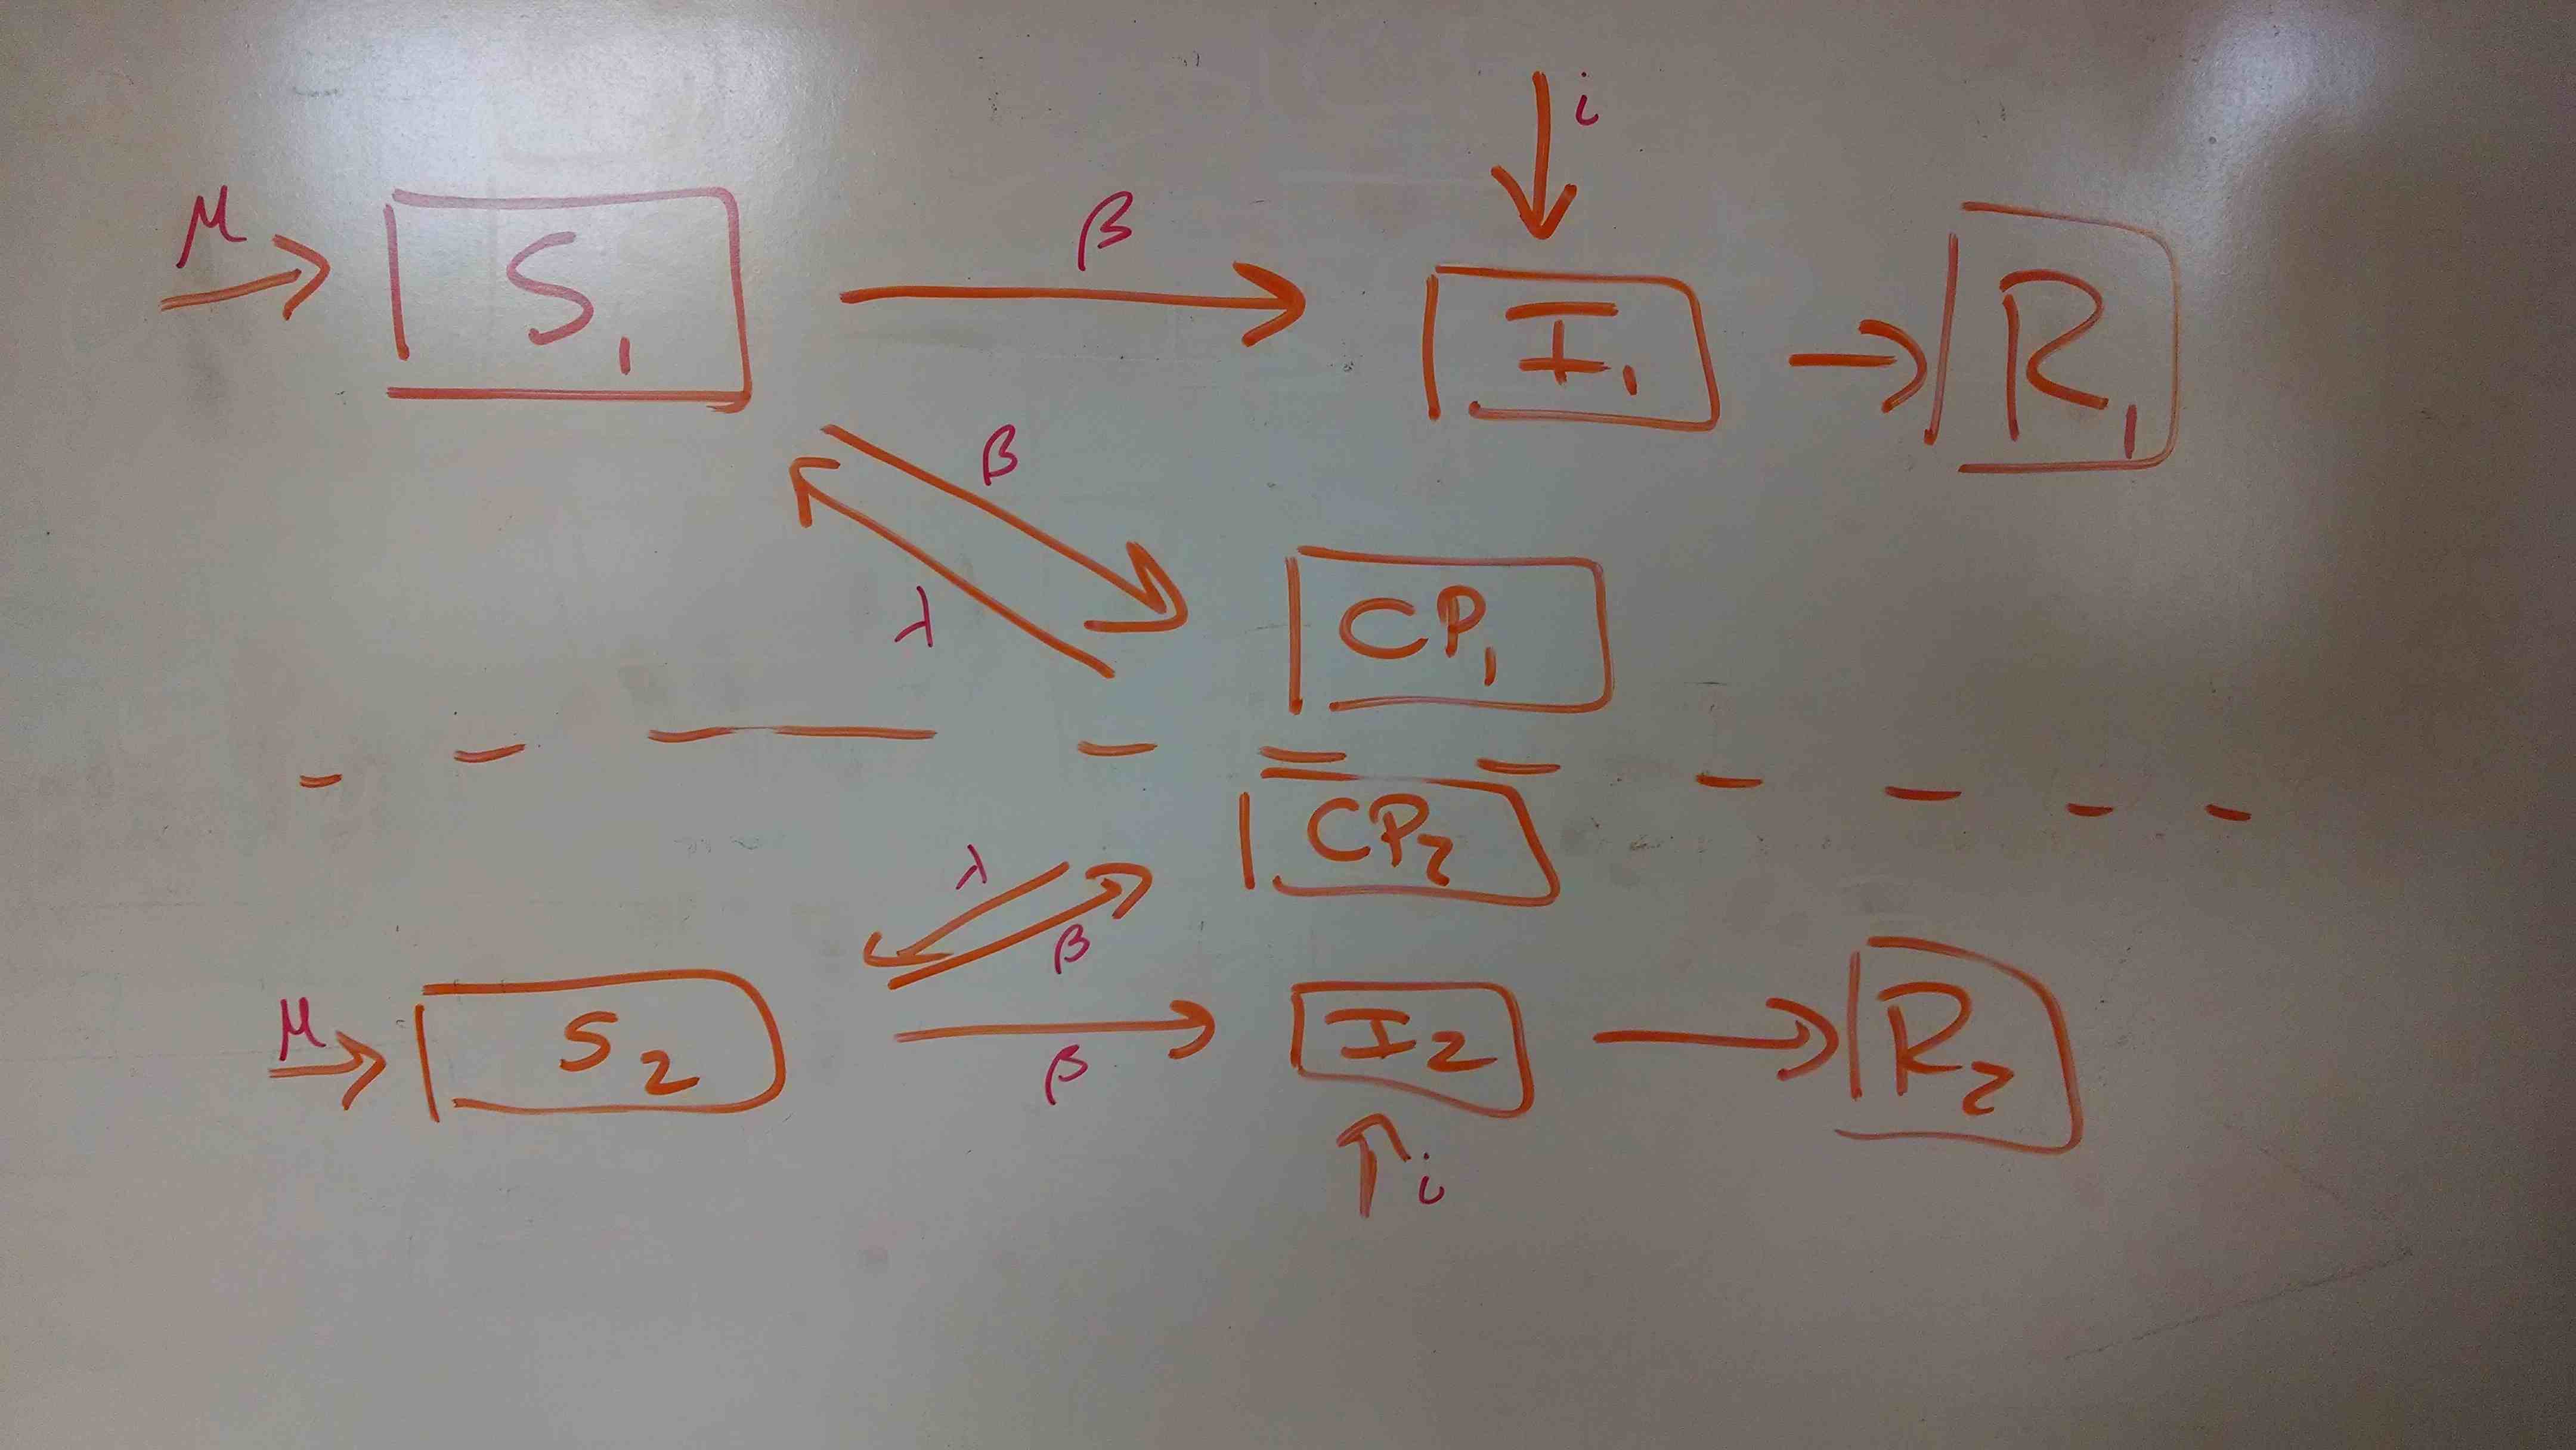 i
μ
S₁
β
I₁
R₁
β
λ
CP₁
CP₂
λ
β
μ
S₂
β
I₂
R₂
i